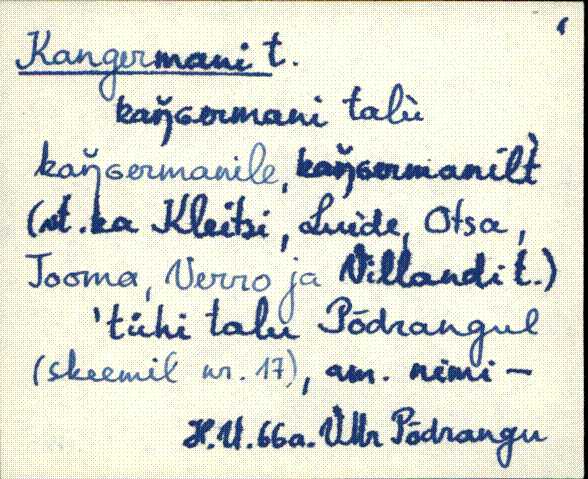 Kangermani t.
kaŋ̆ɢermani talù
kaŋ̆ɢermanile, kaŋ̆ɢermanilt
(vt. ka Kleitsi, Luide, Otsa,
Tooma, Verro ja Villandi t.)
'tühi talu Põdrangul
(skeemil nr. 17), am. nimi –
H.U. 66a. Põdrangu